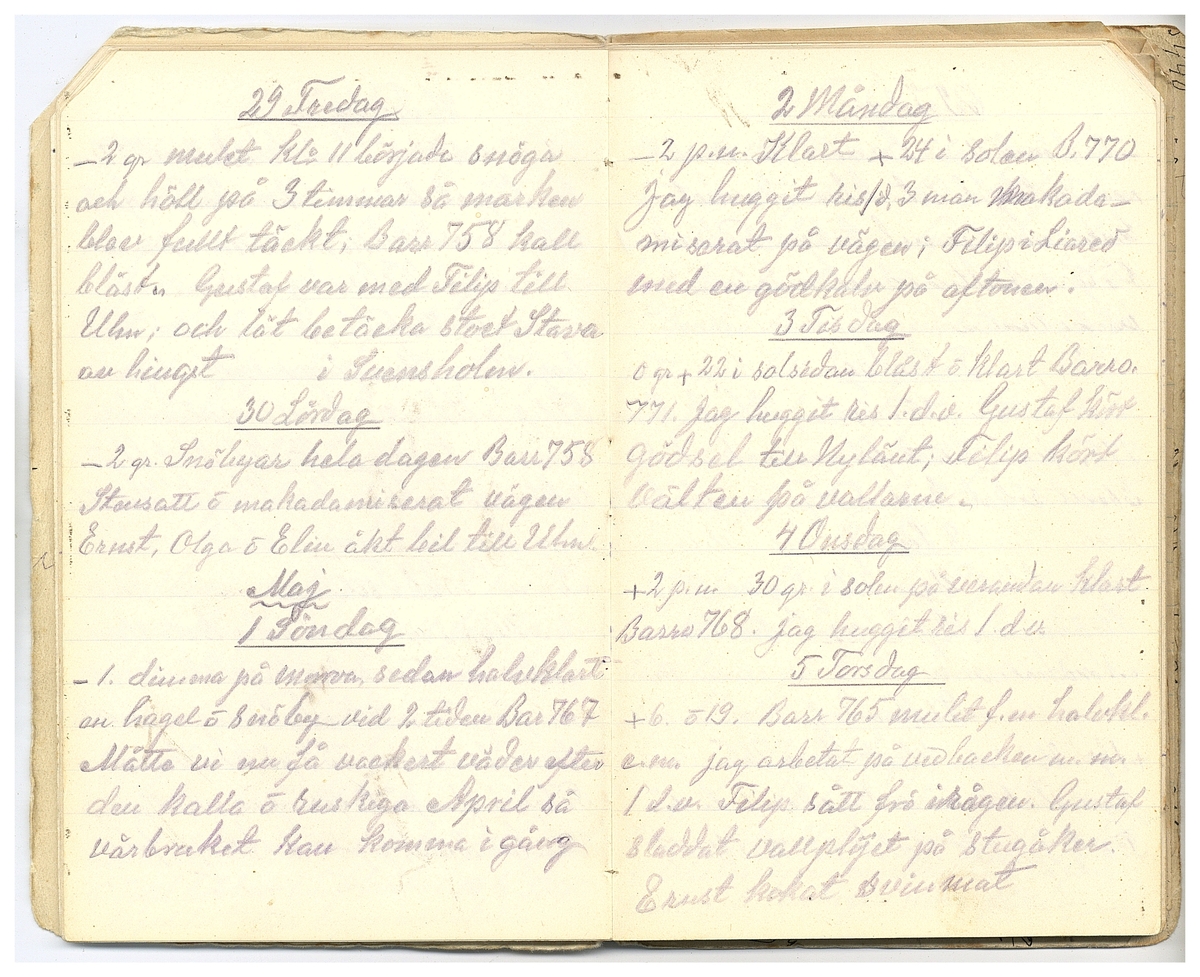 29 Fredag
–2 gr mulet kl: 11 började snöga
och höll på 3 timmar så marken
blev fullt täckt; Barr 758 kall
blåst. Gustaf var med Filip till
Ulm; och lät betäcka stoet Stava
av hingst i Svensholm.
30 Lördag
–2 gr. Snöbyar hela dagen Barr 758
Stensatt o makadamiserat vägen
Ernst, Olga o Elin åkt bil till Ulm.
Maj
1 Söndag
–1. dimma på morron, sedan halvklart
en hagel o snöby vid 2 tiden Bar 767
Måtte vi nu få vackert väder efter
den kalla o ruskiga April så
vårbruket kan komma i gång
2 Måndag
–2 p.m. Klart +24 i solen B. 770
jag huggit ris 3 man makada-
miserat på vägen; Filip i Liared
med en gödkalv på aftonen.
3 Tisdag
0 gr +22 i solsedan blåst o klart Barro.
771. jag huggit ris 1. d.v. Gustaf kört
gödsel till Nylänt; Filip kört
välten på vallarne.
4 Onsdag
+2 p.m. 30 gr. i solen på verandan klart
Barro 768. jag huggit ris 1 d.v.
5 Torsdag
+6. o 19. Barr 765 mulet f.m halvkl.
e.m. jag arbetat på vedbacken m. m.
1 d.v. Filip sått frö i rågen. Gustaf
sladdat vallplöjet på stugåker.
Ernst kokat svinmat